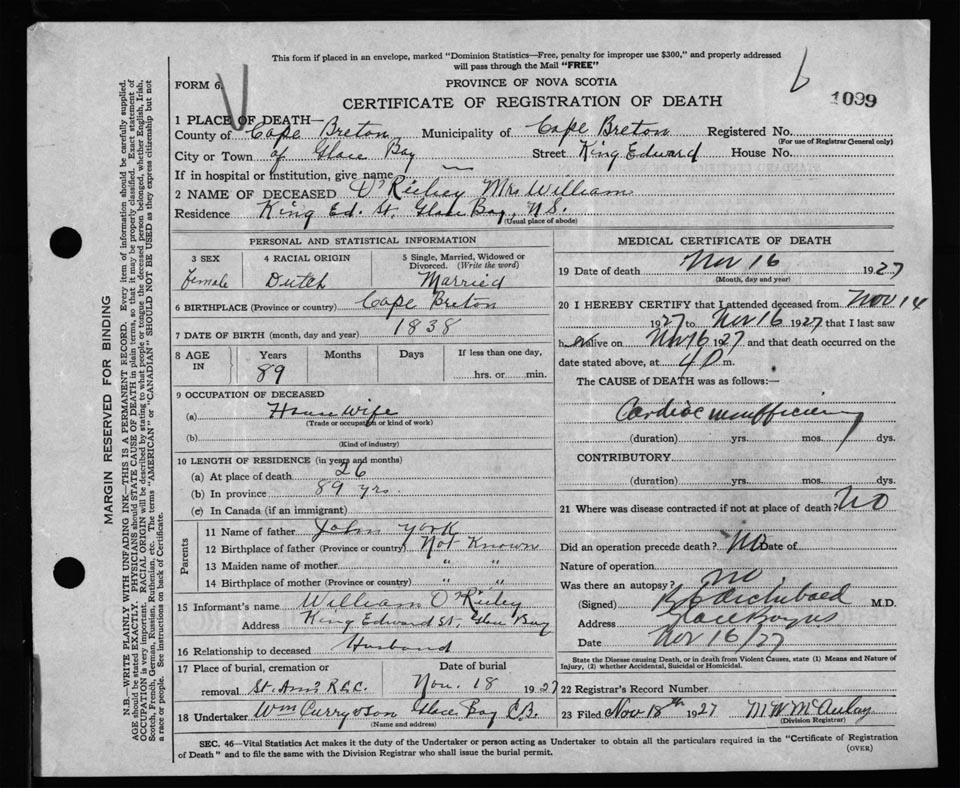 This form if placed in an envelope, marked "Dominion Statistics—Free, penalty for improper use $300," and properly addressed
will pass through the Mail "FREE"
FORM 6.
PROVINCE OF NOVA SCOTIA
CERTIFICATE OF REGISTRATION OF DEATH
1099
1 PLACE OF DEATH—
County of Cape Breton Municipality of Cape Breton Registered No.
(For use of Registrar General only)
City or Town of Glace Bay Street King Edward House No.
If in hospital or institution, give name
2 NAME OF DECEASED O'Rieley Mrs William
Residence King Ed. St. Glace Bay, N.S.
(Usual place of abode)
PERSONAL AND STATISTICAL INFORMATION
3 SEX
Female
4 RACIAL ORIGIN
Dutch
5 Single, Married, Widowed or Divorced. (Write the word)
Married
6 BIRTHPLACE (Province or country) Cape Breton
7 DATE OF BIRTH (month, day and year) 1838
8 AGE IN
Years Months Days If less than one day,
89
hrs. or min.
9 OCCUPATION OF DECEASED
(a) House Wife
(Trade or occupation or kind of work)
(b)
(Kind of industry)
10 LENGTH OF RESIDENCE (in years and months)
(a) At place of death 26
(b) In province 89 yrs.
(c) In Canada (if an immigrant)
Parents
11 Name of father John York
12 Birthplace of father (Province or country) Not Known
13 Maiden name of mother " "
14 Birthplace of mother (Province or country) " "
15 Informant's name William O'Rieley
Address King Edward St, Glace Bay
16 Relationship to deceased Husband
17 Place of burial, cremation or removal St. Ann's R.C.C.
Date of burial
Nov. 18 1927
18 Undertaker Wm Curry & Son Glace Bay C.B.
(Name and address)
MEDICAL CERTIFICATE OF DEATH
19 Date of death Nov 16 1927
(Month, day and year)
20 I HEREBY CERTIFY that I attended deceased from Nov 14
1927 to Nov 16 1927 that I last saw
her alive on Nov 16 1927 and that death occurred on
date stated above, at 4 P m.
The CAUSE of DEATH was as follows:—
Cardiac insufficiency
(duration) yrs. mos. dys.
CONTRIBUTORY
(duration) yrs. mos. dys.
21 Where was disease contracted if not at place of death? No
Did an operation precede death? No Date of
Nature of operation
Was there an autopsy? no
(Signed) Archibald M.D.
Address Glace Bay NS
Date Nov 16/27
State the Disease causing Death, or in death from Violent Causes, state (1) Means and Nature of
Injury, (2) whether Accidental, Suicidal or Homicidal.
22 Registrar's Record Number
23 Filed Nov 18th 1927 M W McAulay
(Division Registrar)
SEC. 46—Vital Statistics Act makes it the duty of the Undertaker or person acting as Undertaker to obtain all the particulars required in the "Certificate of Registration
of Death" and to file the same with the Division Registrar who shall issue the burial permit.
(OVER)
MARGIN RESERVED FOR BINDING
N.B.—WRITE PLAINLY WITH UNFADING INK—THIS IS A PERMANENT RECORD. Every item of information should be carefully supplied.
AGE should be stated EXACTLY. PHYSICIANS should STATE CAUSE OF DEATH in plain terms, so that it may be properly classified. Exact statement of
OCCUPATION is very important. RACIAL ORIGIN will be described by stating to what people or tongue the deceased person belonged, whether English, Irish,
Scotch, French, German, Russian, Ruthenian, etc. The terms "AMERICAN" or "CANADIAN" SHOULD NOT BE USED as they express citizenship but not
a race or people. See instructions on back of Certificate.